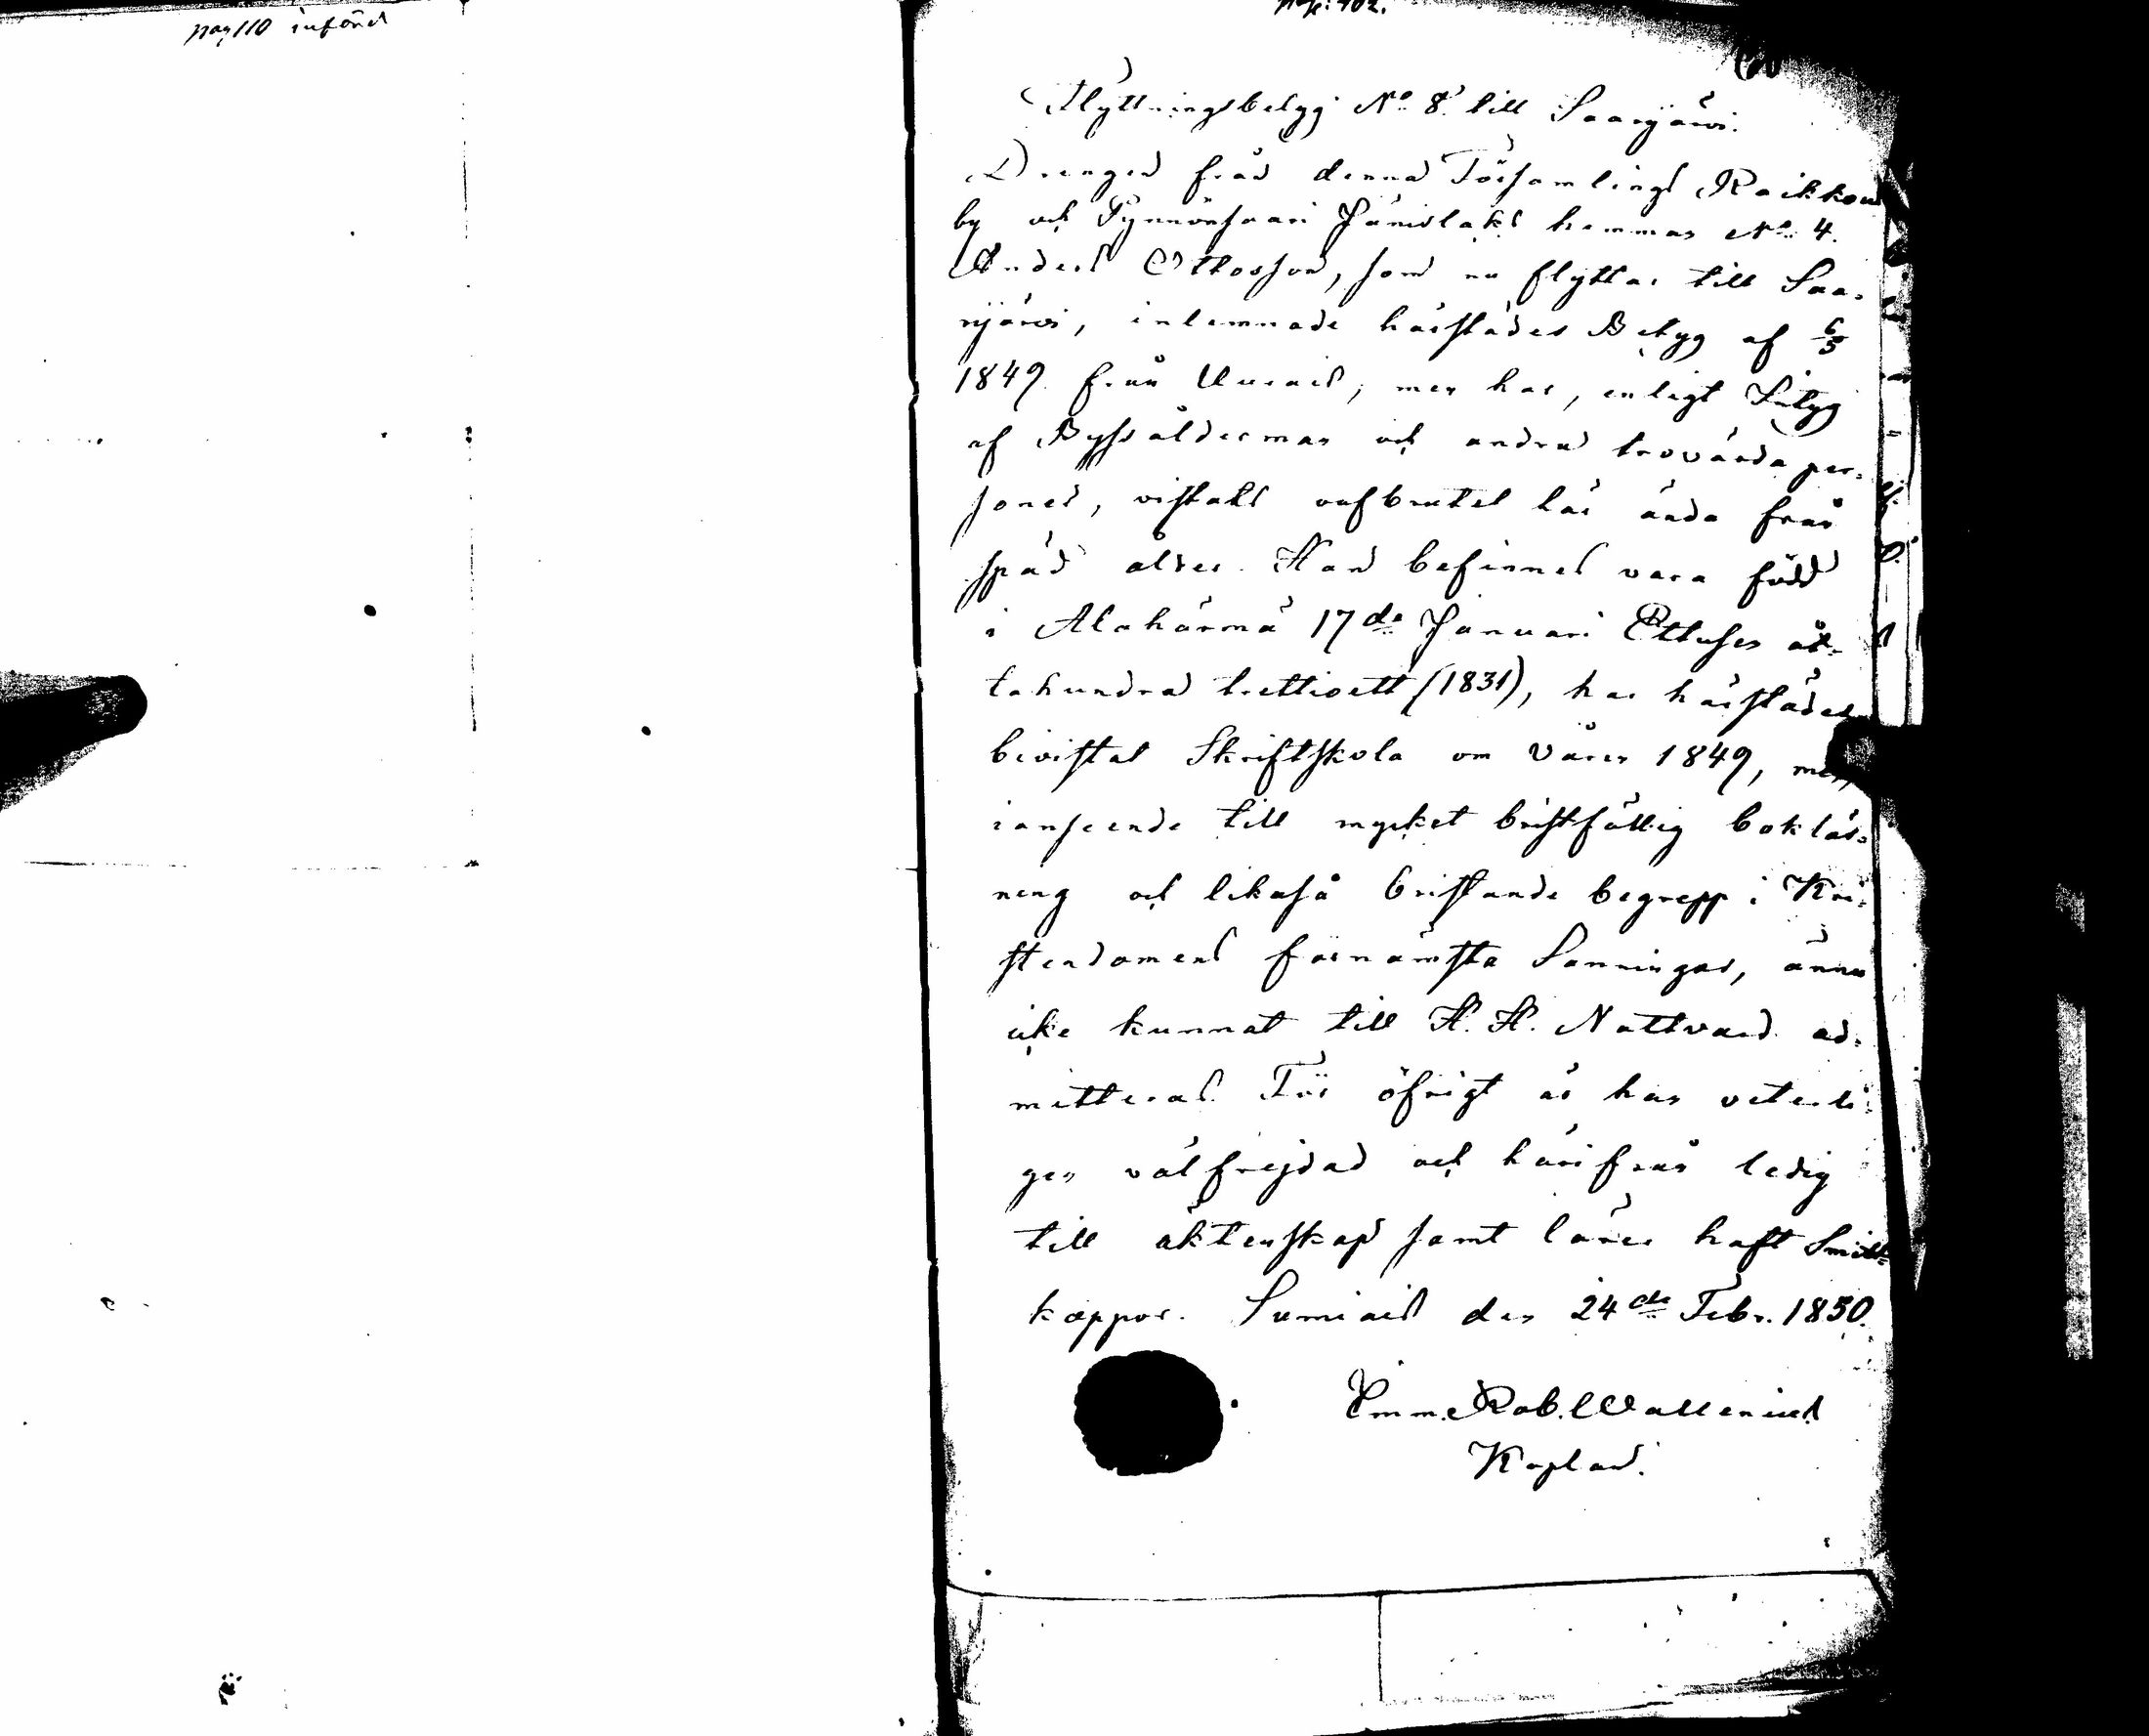 pag 110 införd
pag: 102.
60
Flyttningsbetyg No 8. till Saarijärvi.
Drengen från denna Församlings Raikkaus
by och Tynnönsaari Jänislaks hemman No 4.
Anders Ottosson, som nu flyttar till Saa-
rijärvi, inlemnade härstädes Betyg af 6/5
1849 från Uurais, men har, enligt Intyg
af Bysålderman och andra trovärda per-
soner, vistats oafbrutet här ända från
späd ålder. Han befinnes vara född
i Alahärmä 17de Januari Ettusen åt-
tahundra trettioett (1831), har härstädes
bivistat Skriftskola om Våren 1849, men,
i anseende till mycket bristfällig bokläs-
ning och likaså bristande begrepp i Kri-
stendomens förnämsta Sanningar, ännu
icke kunnat till H. H. Nattvard ad-
mitteras. För öfrigt är han veterli-
gen välfrejdad och härifrån ledig
till äktenskap samt lärer haft Smitt-
koppor. Sumiais den 24de Febr. 1850.
Emm. Rob. Wallenius
Kaplan.